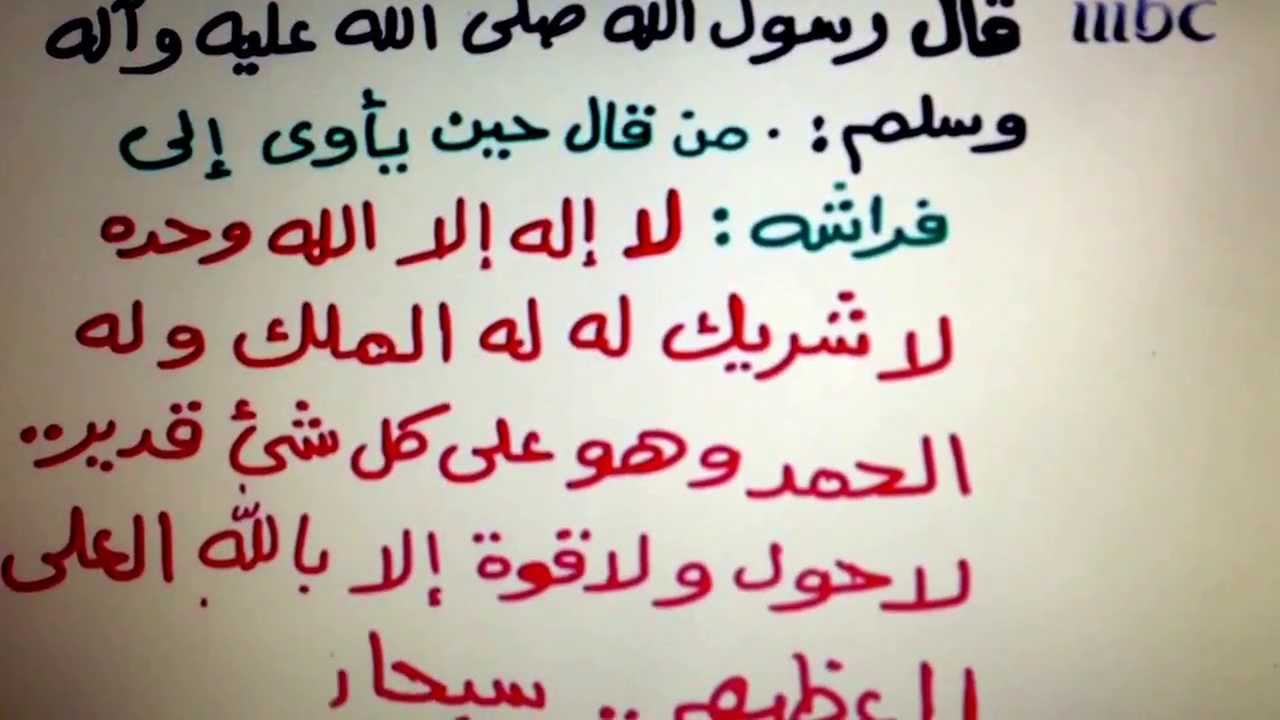 mbc
قال رسول الله صلى الله عليه وآله
وسلم : . من قال حين يأوى إلى
فراشه : لا إله إلا الله وحده
لا شريك له له الملك وله
الحمد وهو على كل شئ قدير ..
لا حول ولا قوة إلا بالله العلى
العظيم .. سبحا